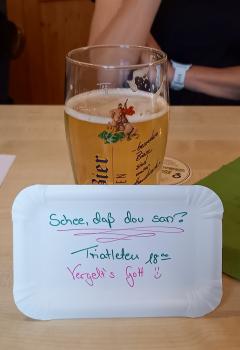 Bier
Schee, daß dou san?
Triatleten 18⁰⁰
Vergelt's Gott